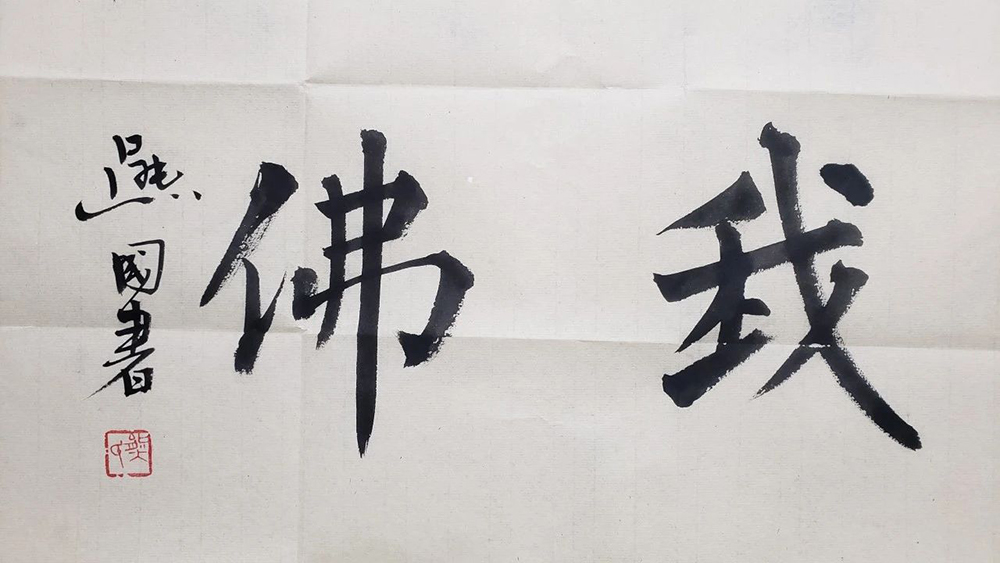 我佛
國書